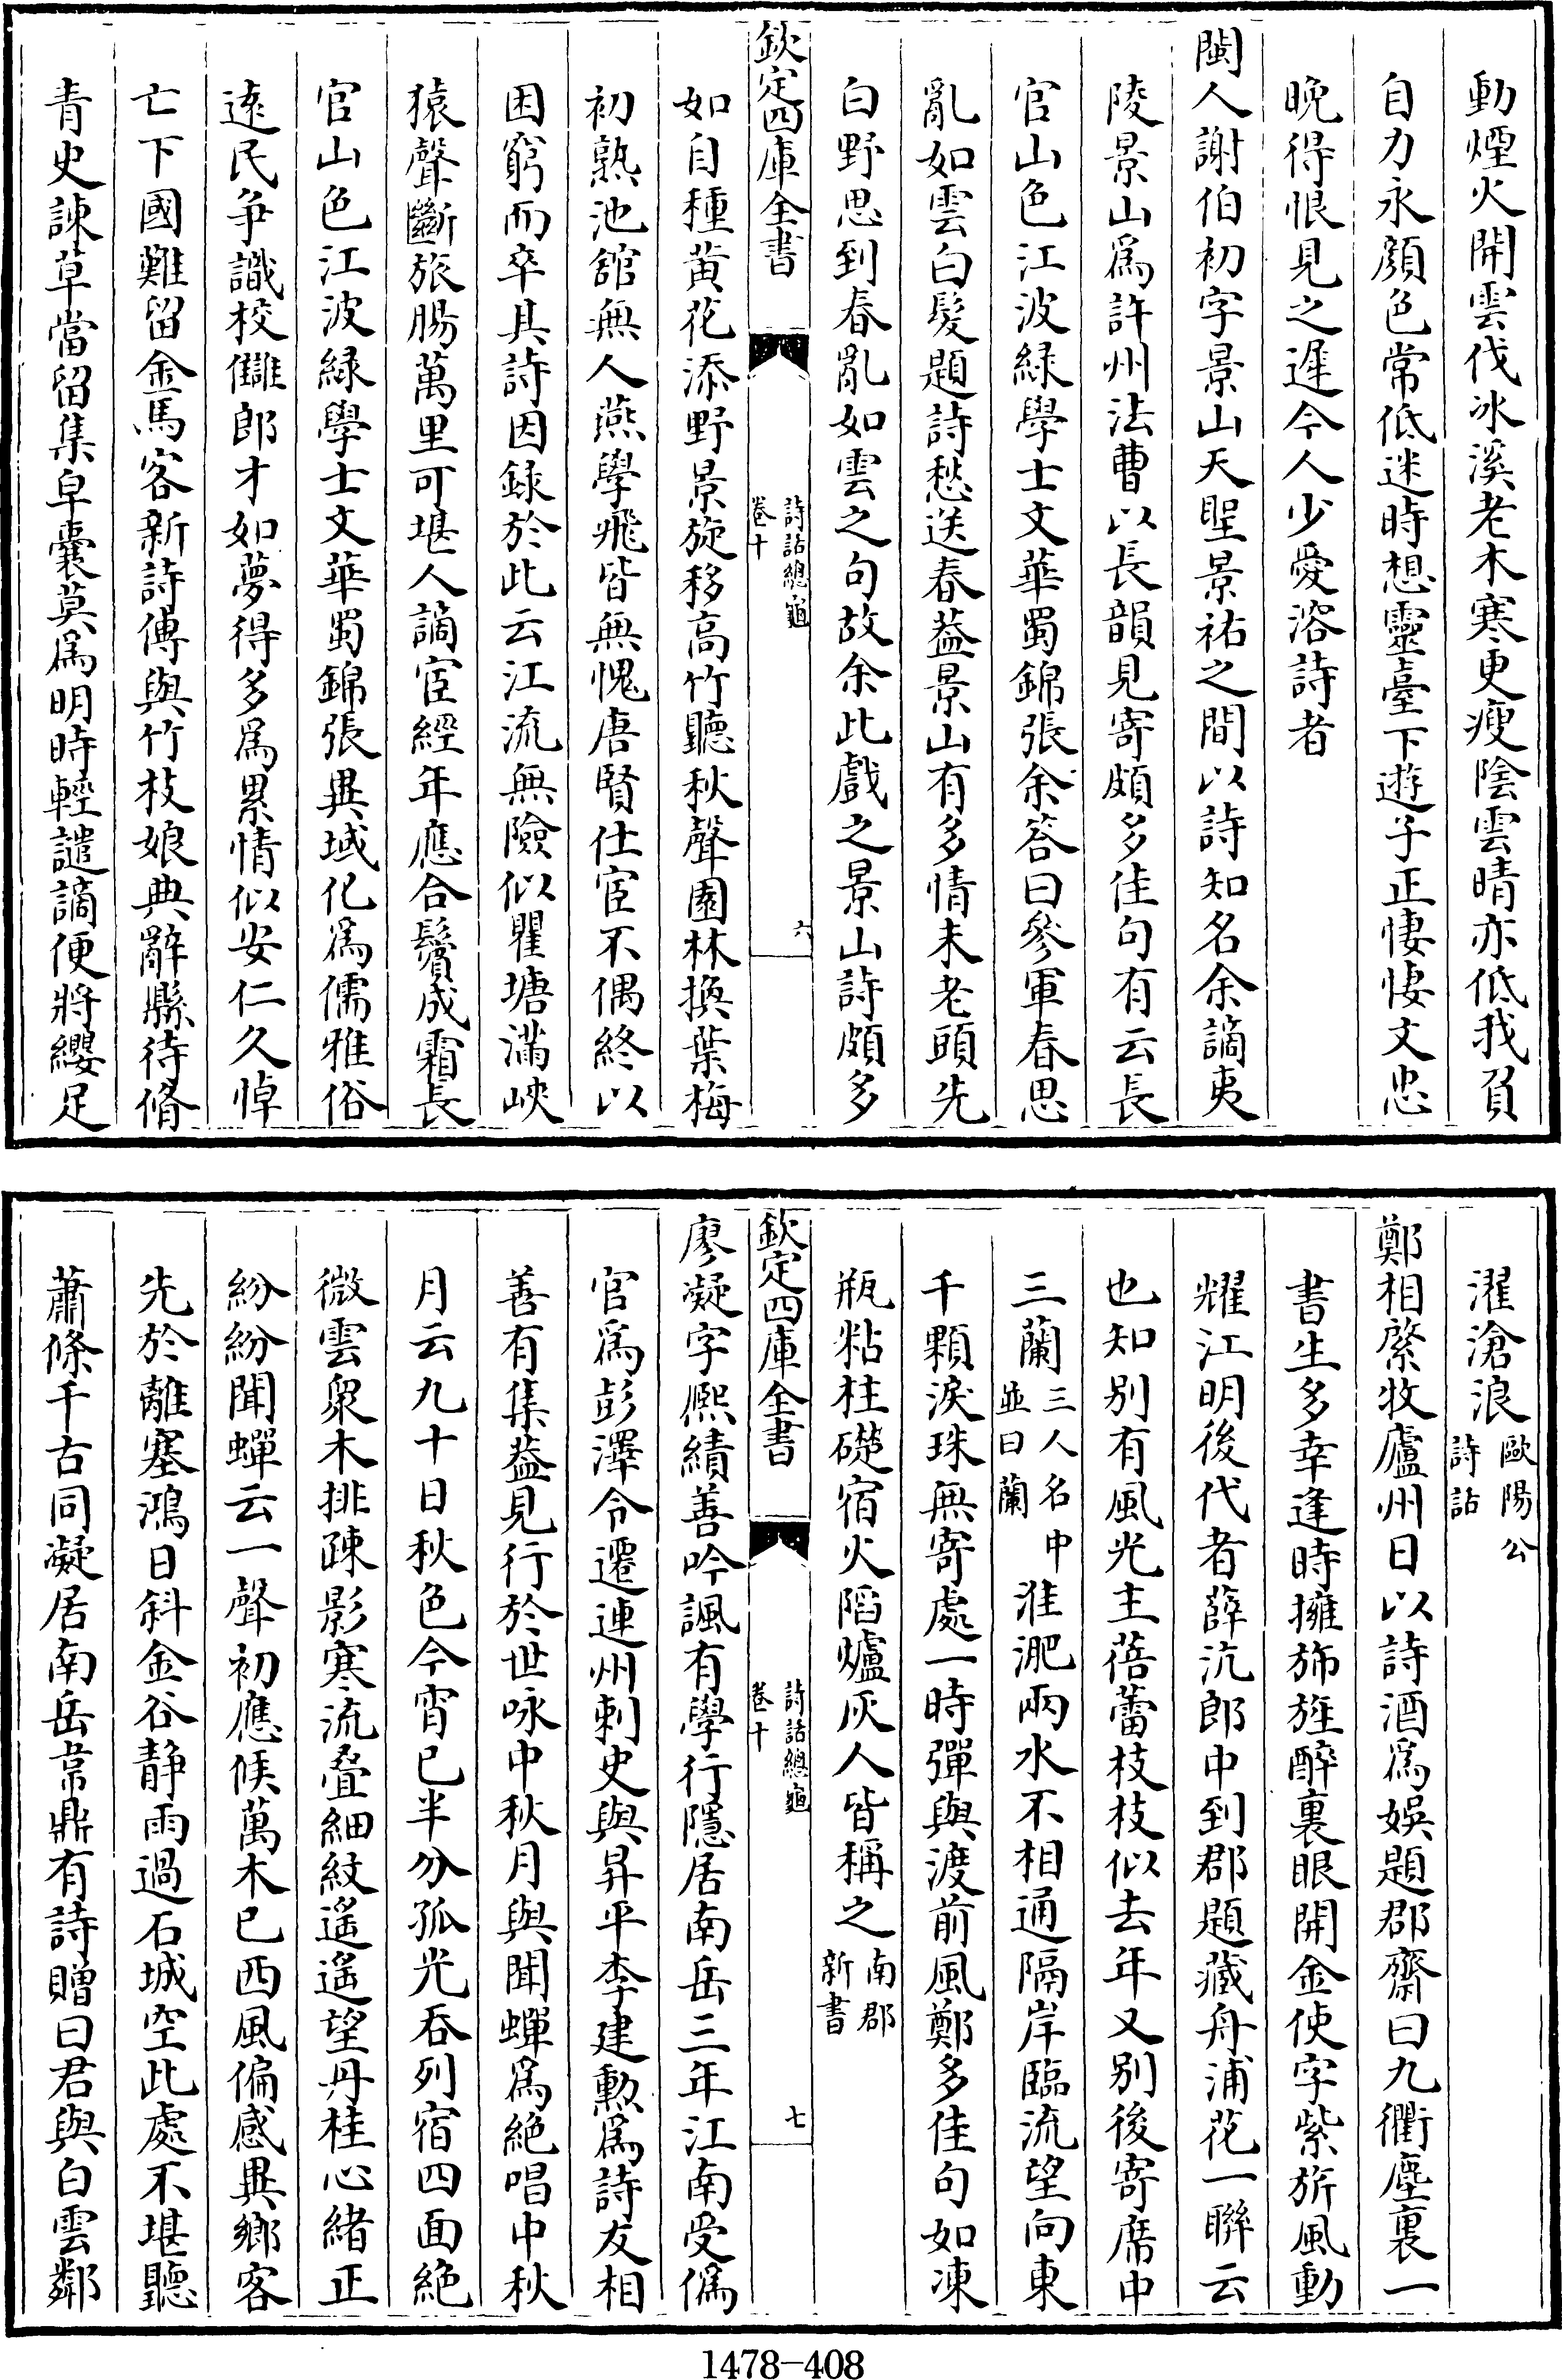 動煙火開雲伐冰溪老木寒更瘦陰雲晴亦低我負
自力永顔色常低迷時想靈臺下遊子正悽悽文忠
晚得恨見之遲今人少愛溶詩者
閩人謝伯初字景山天聖景祐之間以詩知名余謫夷
陵景山爲許州法曹以長韻見寄頗多佳句有云長
官山色江波緑學士文華蜀錦張余答曰參軍春思
亂如雲白髮題詩愁送春葢景山有多情未老頭先
白野思到春亂如雲之句故余此戲之景山詩頗多
欽定四庫全書
詩話總龜
卷十
六
如自種黄花添野景旋移高竹聽秋聲園林換葉梅
初熟池舘無人燕學飛皆無愧唐賢仕宦不偶終以
困窮而卒其詩因録於此云江流無險似瞿塘滿峽
猿聲斷旅腸萬里可堪人謫宦經年應合鬢成霜長
官山色江波緑學士文華蜀錦張異域化爲儒雅俗
逺民争識校讎郎才如夢得多爲累情似安仁久悼
亡下國難留金馬客新詩傳與竹枝娘典辭縣待脩
青史諫草當留集皁囊莫爲明時輕譴謫便將纓足
濯滄浪歐陽公
詩話
鄭相綮牧廬州日以詩酒爲娯題郡齋曰九衢塵裏一
書生多幸逢時擁斾旌醉裏眼開金使字紫旂風動
耀江明後代者薛沆郎中到郡題藏舟浦花一聯云
也知别有風光主蓓蕾枝枝似去年又别後寄席中
三蘭三人名中
並曰蘭淮淝兩水不相通隔岸臨流望向東
千顆淚珠無寄處一時彈與渡前風鄭多佳句如凍
瓶粘柱礎宿火陷爐灰人皆稱之南郡
新書
欽定四庫全書
詩話總龜
卷十
七
廖凝字熈績善吟諷有學行隱居南岳三年江南受僞
官爲彭澤令遷連州刺史與昇平李建勲爲詩友相
善有集葢見行於世咏中秋月與聞蟬爲絶唱中秋
月云九十日秋色今宵已半分孤光吞列宿四面絶
微雲衆木排疎影寒流疊細紋遙遙望丹桂心緒正
紛紛聞蟬云一聲初應候萬木已西風偏感異鄉客
先於離塞鴻日斜金谷静雨過石城空此處不堪聽
蕭條千古同凝居南岳韋鼎有詩贈曰君與白雲鄰
1478-408